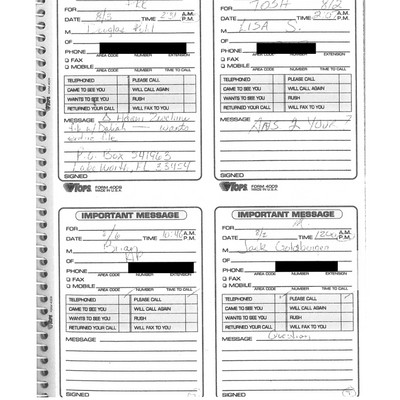 FOR
DATE 8/3 TIME A.M. P.M.
M Douglas
OF
PHONE
AREA CODE NUMBER EXTENSION
FAX
MOBILE
AREA CODE NUMBER TIME TO CALL
TELEPHONED PLEASE CALL
CAME TO SEE YOU WILL CALL AGAIN
WANTS TO SEE YOU RUSH
RETURNED YOUR CALL WILL FAX TO YOU
MESSAGE
wants
P.O. Box 541463
Lake Worth, FL
SIGNED
TOPS FORM 4009
MADE IN U.S.A.
FOR TOSH
DATE 8/2 TIME A.M. P.M.
M LISA S.
OF
PHONE
AREA CODE NUMBER EXTENSION
FAX
MOBILE
AREA CODE NUMBER TIME TO CALL
TELEPHONED PLEASE CALL
CAME TO SEE YOU WILL CALL AGAIN
WANTS TO SEE YOU RUSH
RETURNED YOUR CALL WILL FAX TO YOU
MESSAGE
Your ?
SIGNED
TOPS FORM 4009
MADE IN U.S.A.
IMPORTANT MESSAGE
FOR
DATE TIME 10:40 A.M. P.M.
M
OF
PHONE
AREA CODE NUMBER EXTENSION
FAX
MOBILE
AREA CODE NUMBER TIME TO CALL
TELEPHONED PLEASE CALL
CAME TO SEE YOU WILL CALL AGAIN
WANTS TO SEE YOU RUSH
RETURNED YOUR CALL WILL FAX TO YOU
MESSAGE
SIGNED
IMPORTANT MESSAGE
FOR
DATE TIME A.M. P.M.
M Jack
OF
PHONE
AREA CODE NUMBER EXTENSION
FAX
MOBILE
AREA CODE NUMBER TIME TO CALL
TELEPHONED PLEASE CALL
CAME TO SEE YOU WILL CALL AGAIN
WANTS TO SEE YOU RUSH
RETURNED YOUR CALL WILL FAX TO YOU
MESSAGE
Question
SIGNED